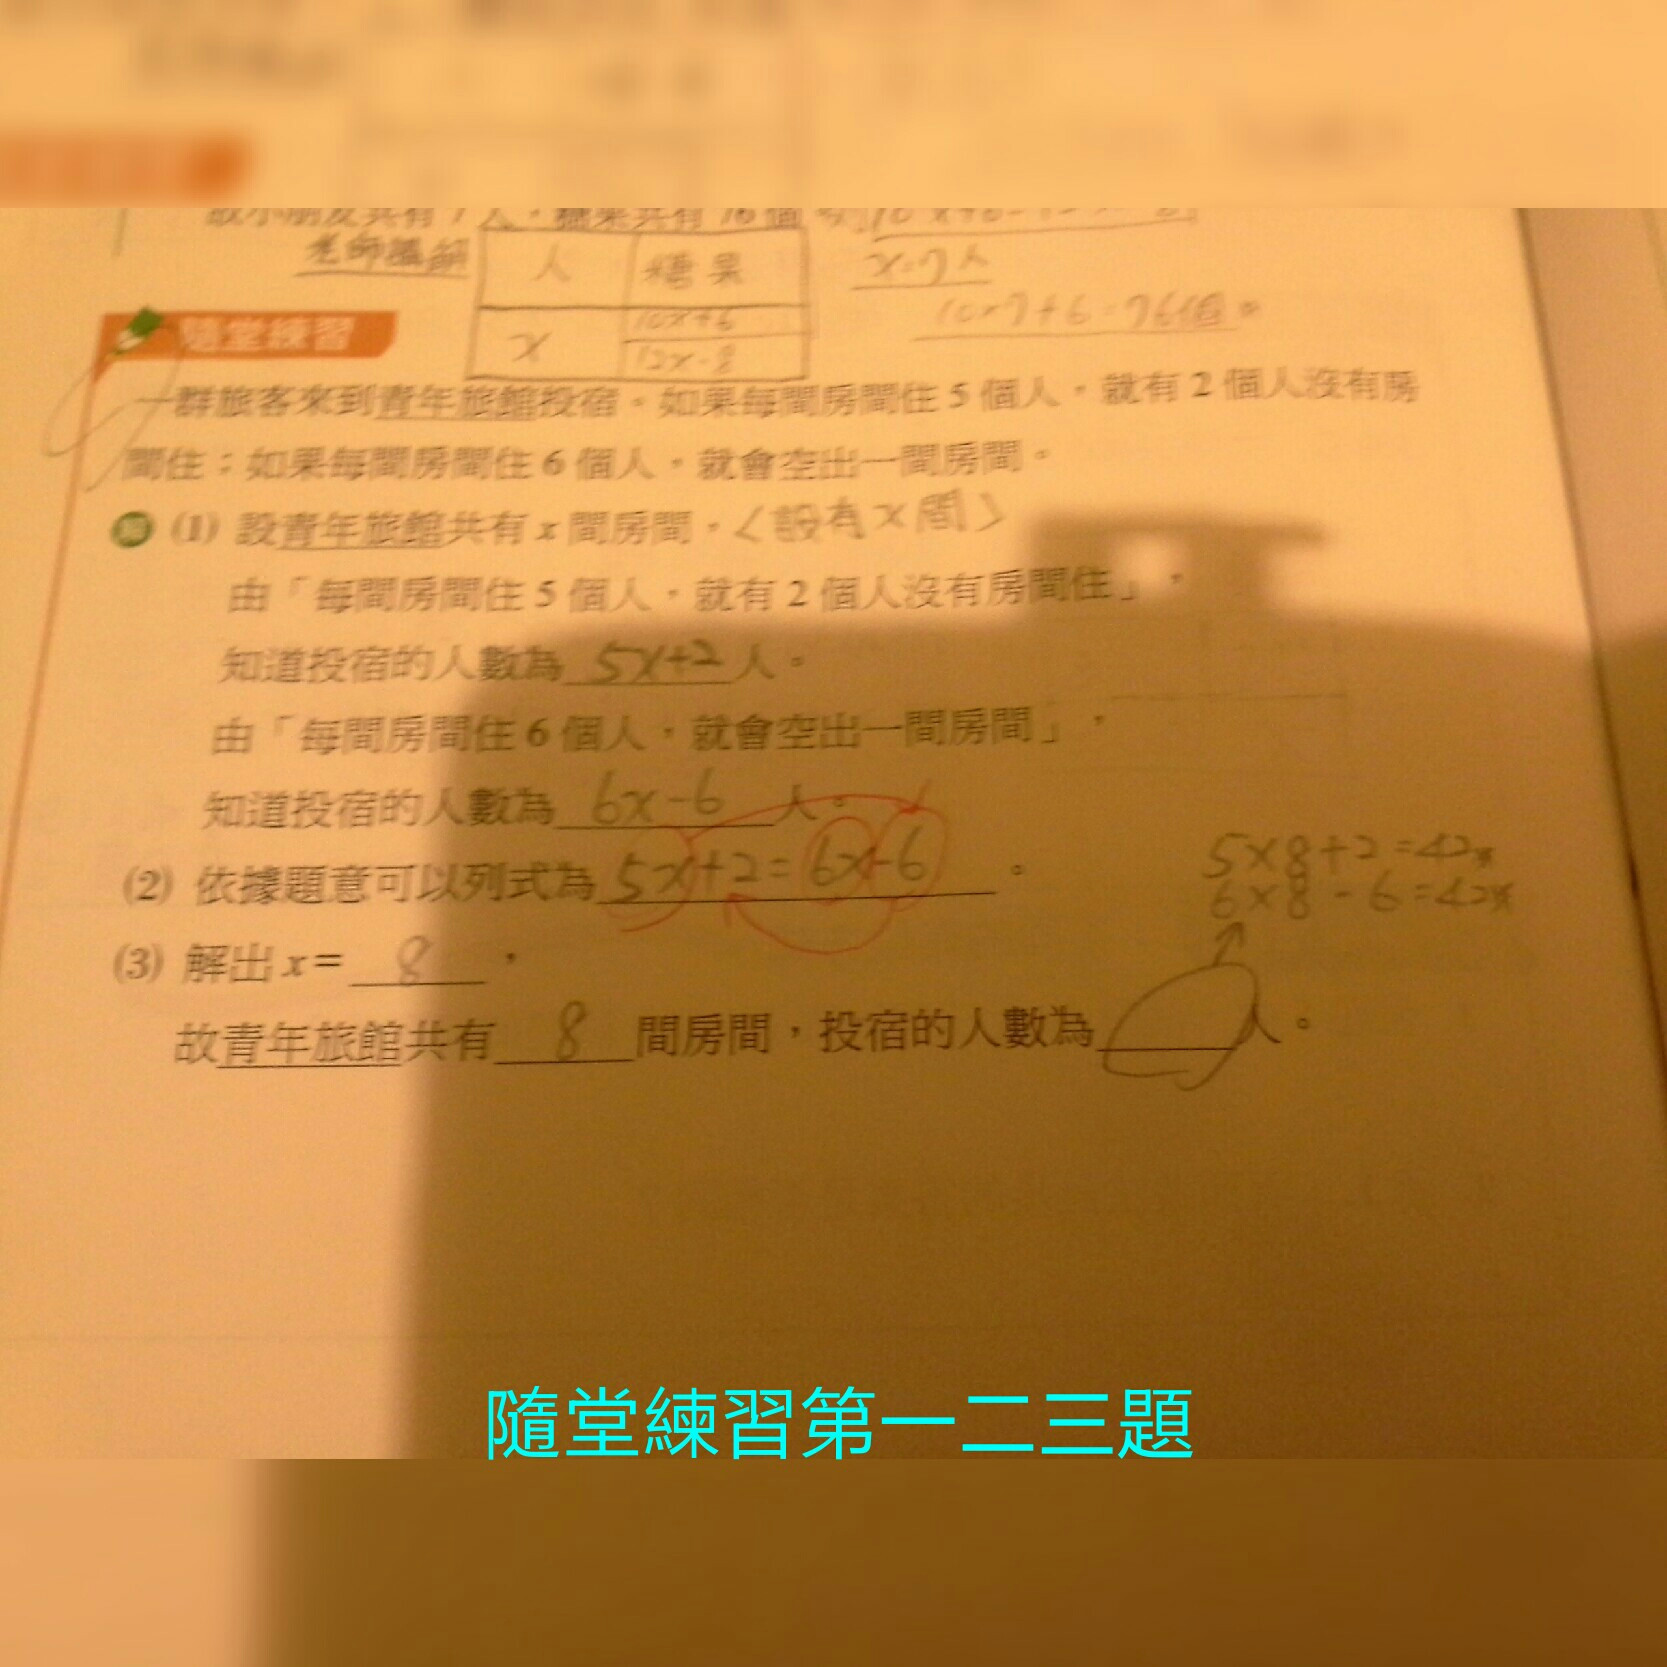 故小朋友共有 7 人，糖果共有 76 個
老師講解
人 糖果
x=7人
隨堂練習
x 10x+6
12x-8
10×7+6=76個
一群旅客來到青年旅館投宿。如果每間房間住 5 個人，就有 2 個人沒有房
間住；如果每間房間住 6 個人，就會空出一間房間。
解 (1) 設青年旅館共有 x 間房間，<設有x間>
由「每間房間住 5 個人，就有 2 個人沒有房間住」，
知道投宿的人數為 5x+2 人。
由「每間房間住 6 個人，就會空出一間房間」，
知道投宿的人數為 6x-6 人。
(2) 依據題意可以列式為 5x+2=6x-6 。
5×8+2=42
6×8-6=42
(3) 解出 x= 8 ，
故青年旅館共有 8 間房間，投宿的人數為 人。
隨堂練習第一二三題